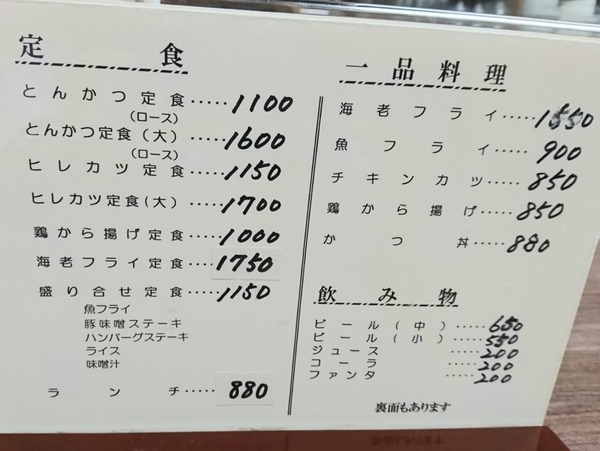 定食
とんかつ定食・・・・・1100
(ロース)
とんかつ定食(大)・・1600
(ロース)
ヒレカツ定食・・・・・1150
ヒレカツ定食(大)・・1700
鶏から揚げ定食・・・・1000
海老フライ定食・・・・1750
盛り合せ定食・・・・・1150
魚フライ
豚味噌ステーキ
ハンバーグステーキ
ライス
味噌汁
ランチ・・・・・880
一品料理
海老フライ・・・・
魚フライ・・・・・900
チキンカツ・・・・・850
鶏から揚げ・・・・・850
かつ丼・・・・・880
飲み物
ビール(中)・・・・・650
ビール(小)・・・・・550
ジュース・・・・・200
コーラ・・・・・200
ファンタ・・・・・200
裏面もあります